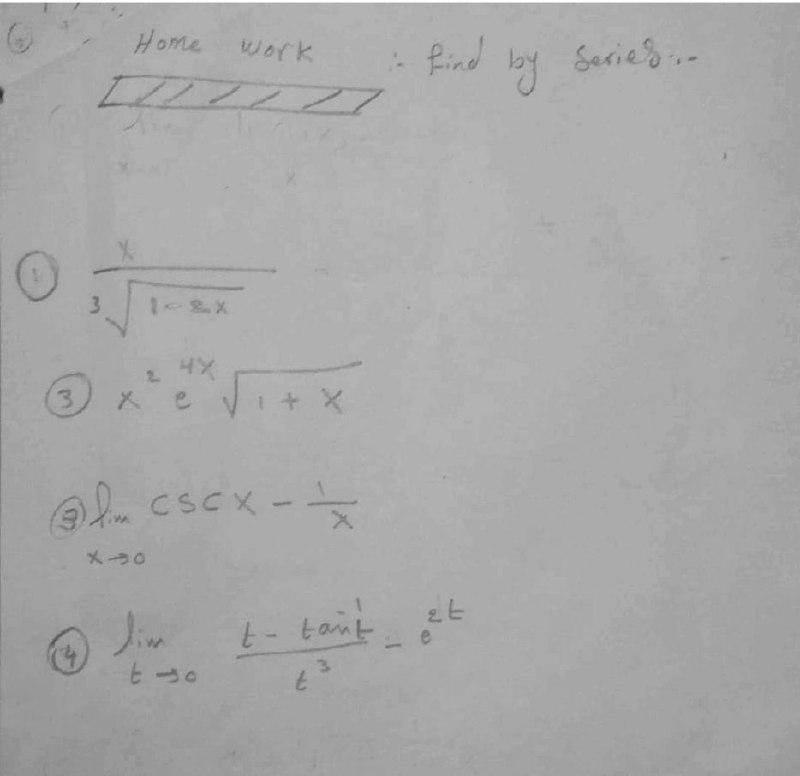 Home work :- find by series :-
① x / ³√(1-2x)
③ x² e^(4x) √(1+x)
③ lim csc x - 1/x
x→0
④ lim (t - tan⁻¹t)/t³ - e^(2t)
t→0